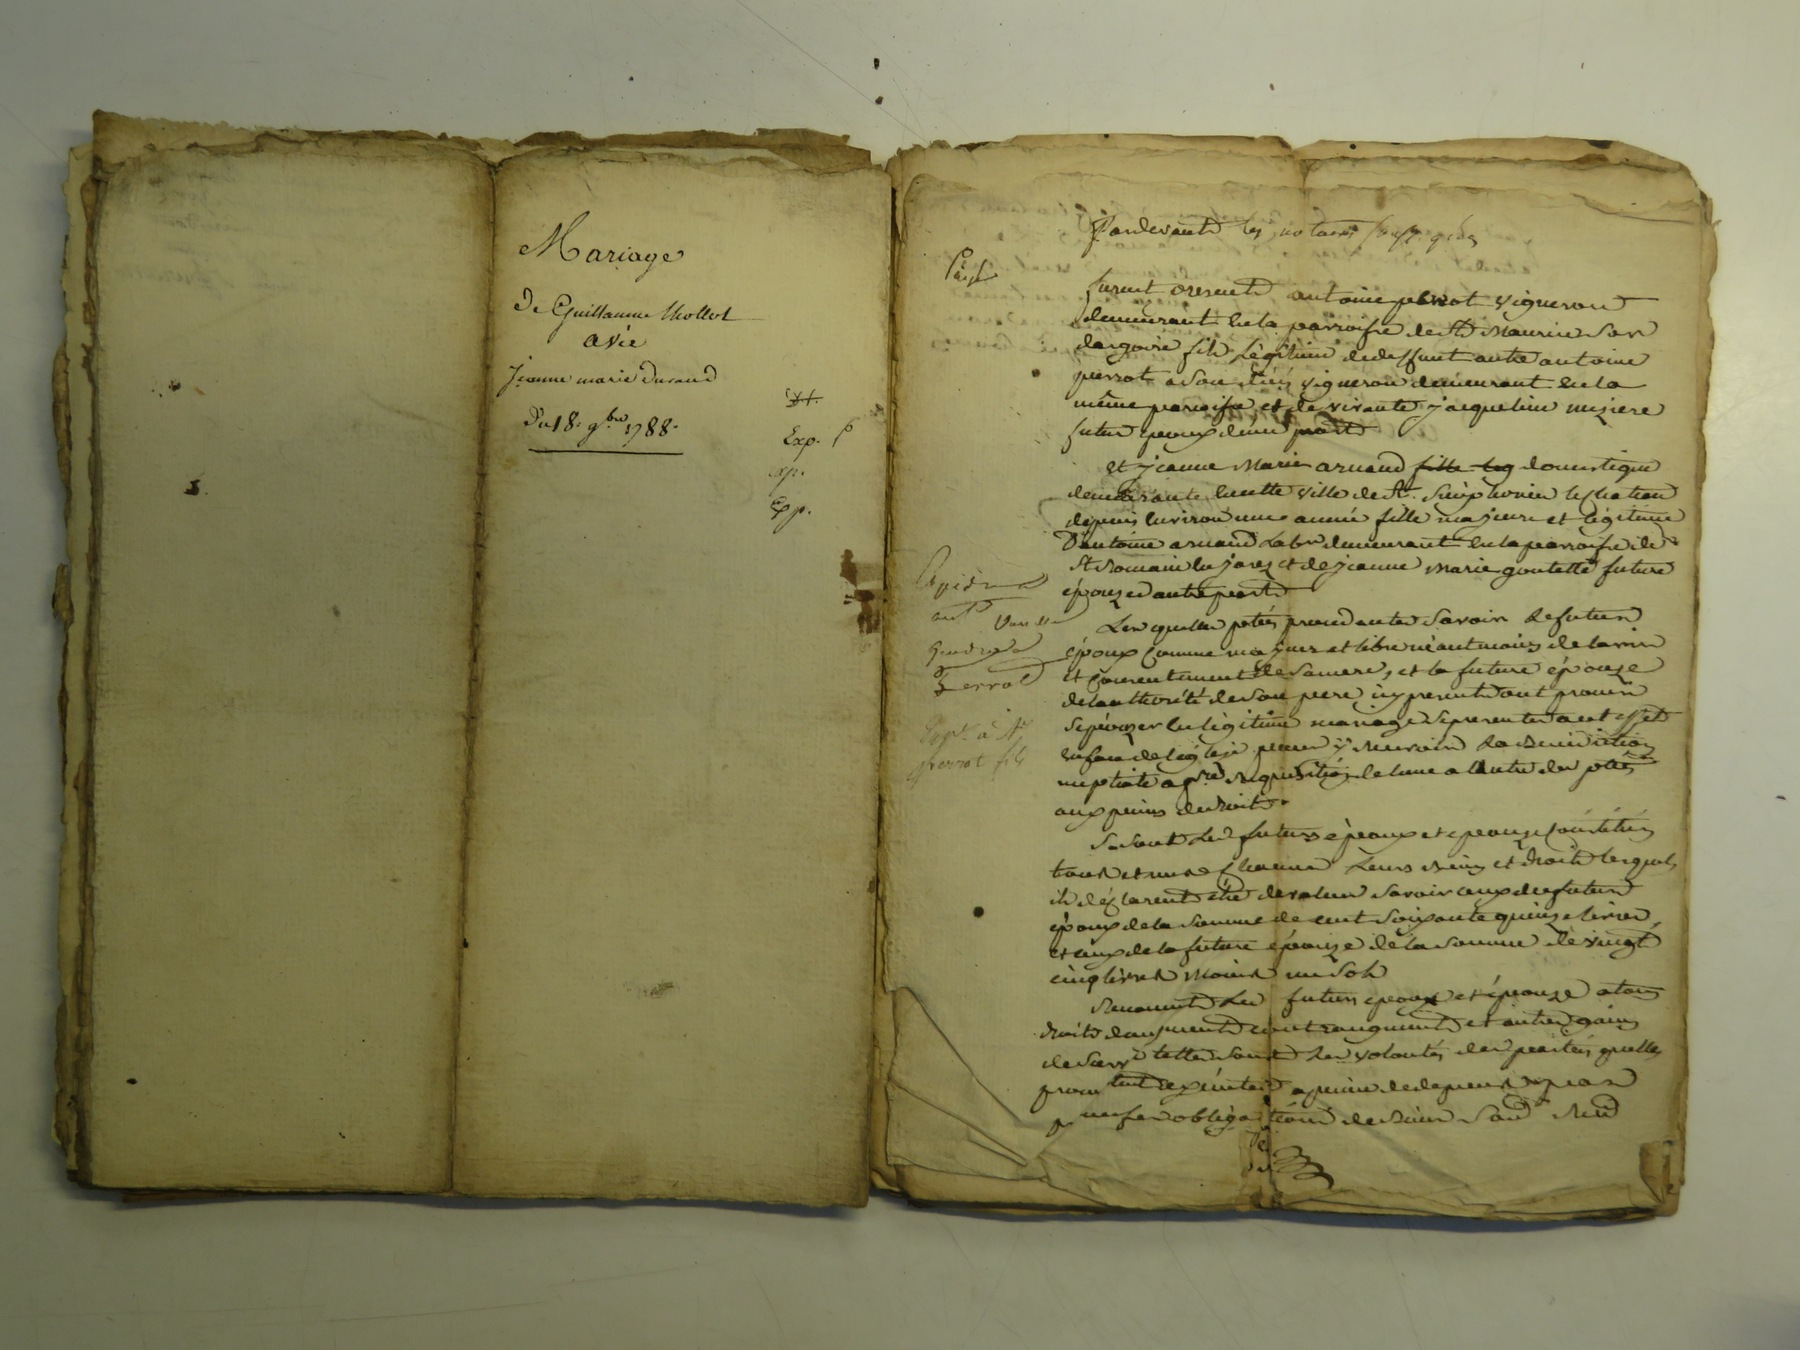 Mariage
De Guillaume Mollot
avec
Jeanne marie Durand
Du 18. 9.bre 1788.
Exp.
Exp.
Exp.
Pardevant les notaires soussignés
furent presents antoine perrot vigneron
demeurant en la parroisse de St Maurice sur
dargoire fils légitime de deffunt autre antoine
perrot a son vivant vigneron demeurant en la
même parroisse et de vivante jacqueline miziere
futur epoux d'une part
et jeanne Marie arnaud fille leg domestique
demeurante en cette ville de St. Simphorien le chateau
depuis environ une année fille majeure et légitime
D'antoine arnaud Labr demeurant en la parroisse de
St Romain en jarez et de jeanne Marie goutette future
épouze d'autre part
Lesquelles pties procedantes savoir le futur
époux comme majeur et libre néantmoins de l'avis
et consentement de sa mere, et la future épouze
de l'authorité de son pere icy present ont promis
se épouzer en légitime mariage se presenter a cet effet
en face de l'église pour y recevoir la Benediction
nuptiale a pre requisition de l'une a l'autre des pties
aux peines de droit.
Se sont les futurs époux et epouze constitués
tous et uns chacun Leurs biens et droits lesquels
ils déclarent être de valeur savoir ceux du futur
époux de la somme de cent soixante quinze livres
et ceux de la future épouze de la somme de vingt
cinq livres moins un sol
Renoncent les futurs epoux et épouze a tous
droits d'augment contraugment et autres gains
de survie telles sont les volontés des parties quelles
prom tent executer a peine de depens par
obligation de Biens
perrot fils